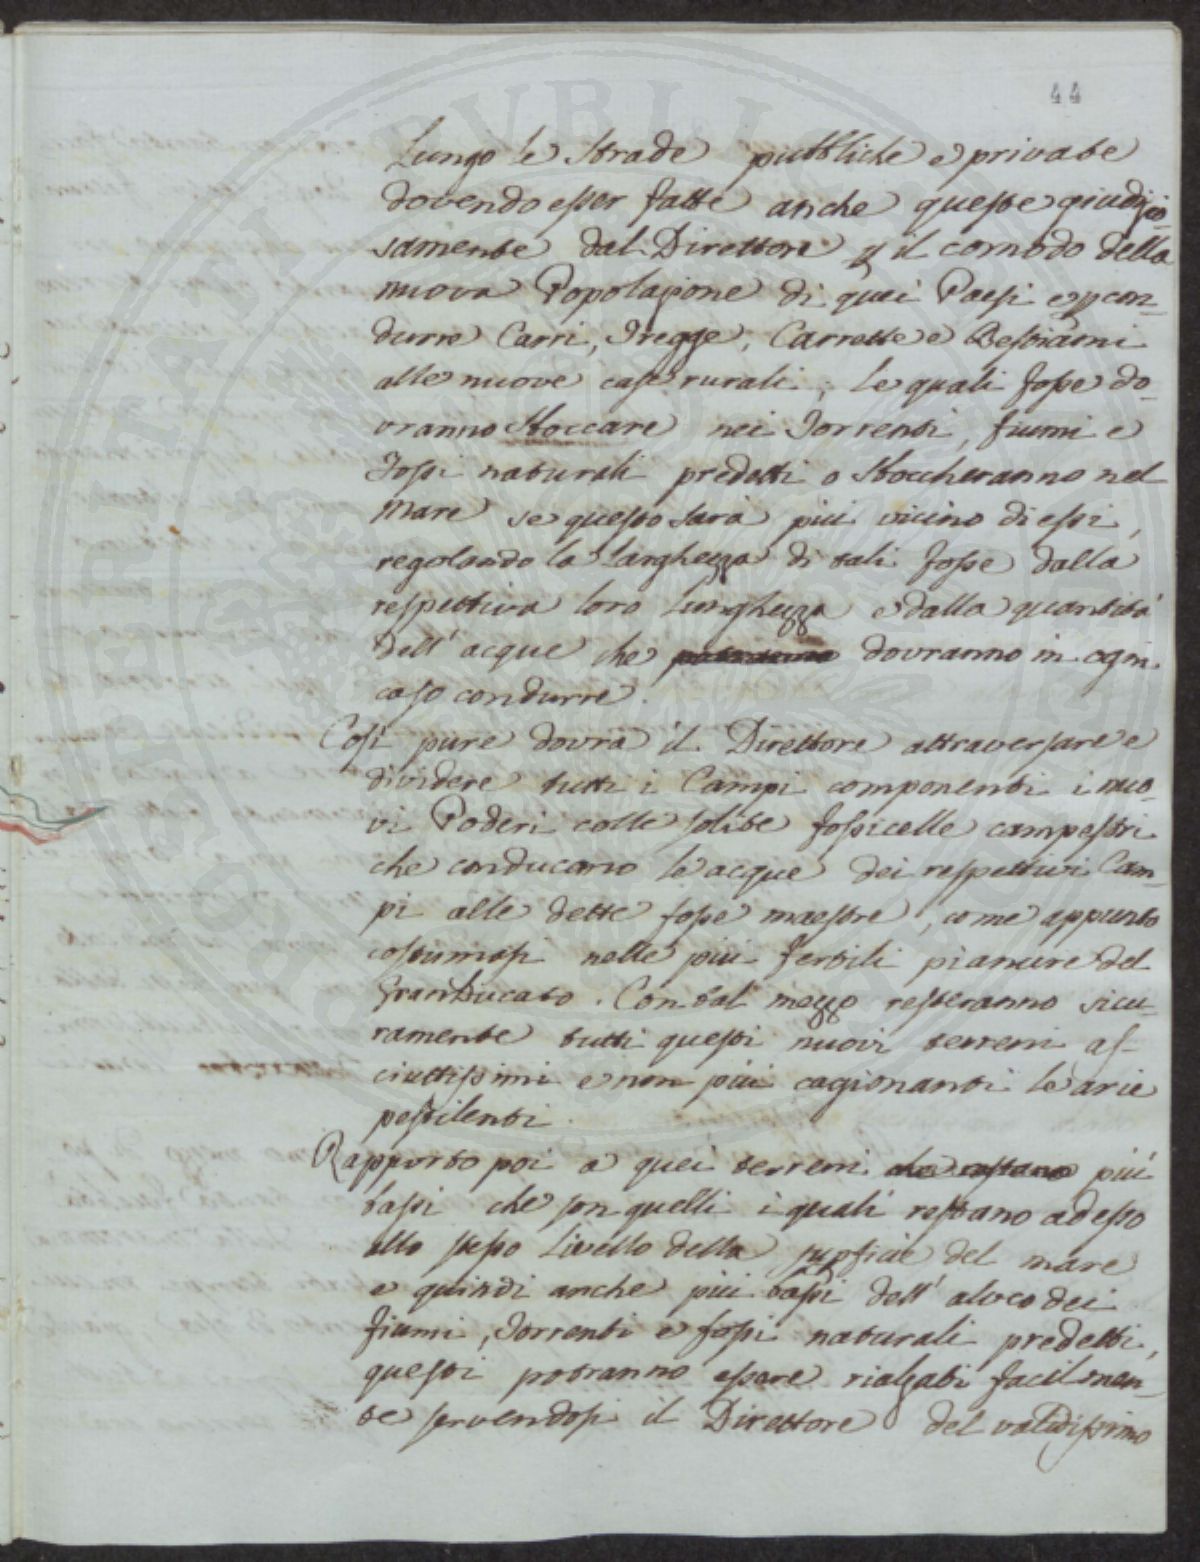 44
Lungo le Strade pubbliche e private
dovendo esser fatte anche queste giudizio-
samente dal Direttore p il comodo della
nuova Popolazione di quei Paesi e p con-
durre Carri, Tregge, Carrette e Bestiami
alle nuove case rurali, le quali fosse do-
vranno sboccare nei Torrenti, fiumi e
Fossi naturali predetti o sboccheranno nel
Mare se questo sarà più vicino di essi,
regolando la larghezza di tali fosse dalla
respettiva loro lunghezza e dalla quantità
dell' acque che potranno dovranno in ogni
caso condurre.
Così pure dovrà il Direttore attraversare e
dividere tutti i Campi componenti i nuo-
vi Poderi colle solite fossicelle campestri
che conducano le acque dei respettivi Cam-
pi alle dette fosse maestre, come appunto
costumasi nelle più fertili pianure del
GranDucato. Con tal mezzo resteranno sicu-
ramente tutti questi nuovi terreni as-
ciuttissimi e non più cagionanti le arie
pestilenti.
Rapporto poi a quei terreni che restano più
bassi che son quelli i quali restano adesso
allo stesso livello della supficie del mare
e quindi anche più bassi dell' alveo dei
fiumi, Torrenti e fossi naturali predetti,
questi potranno essere rialzati facilmen-
te servendosi il Direttore del validissimo